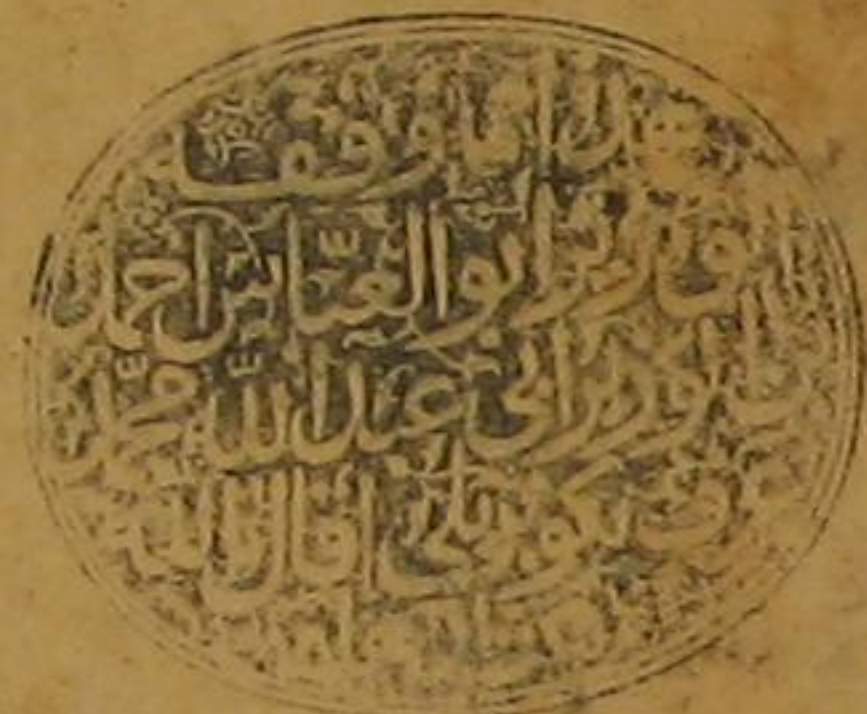 هذا مما وقفه
الوزير ابو العباس احمد
بن الوزير ابي عبد الله محمد
عرف بكوپريلي اقال الله
عثارهما